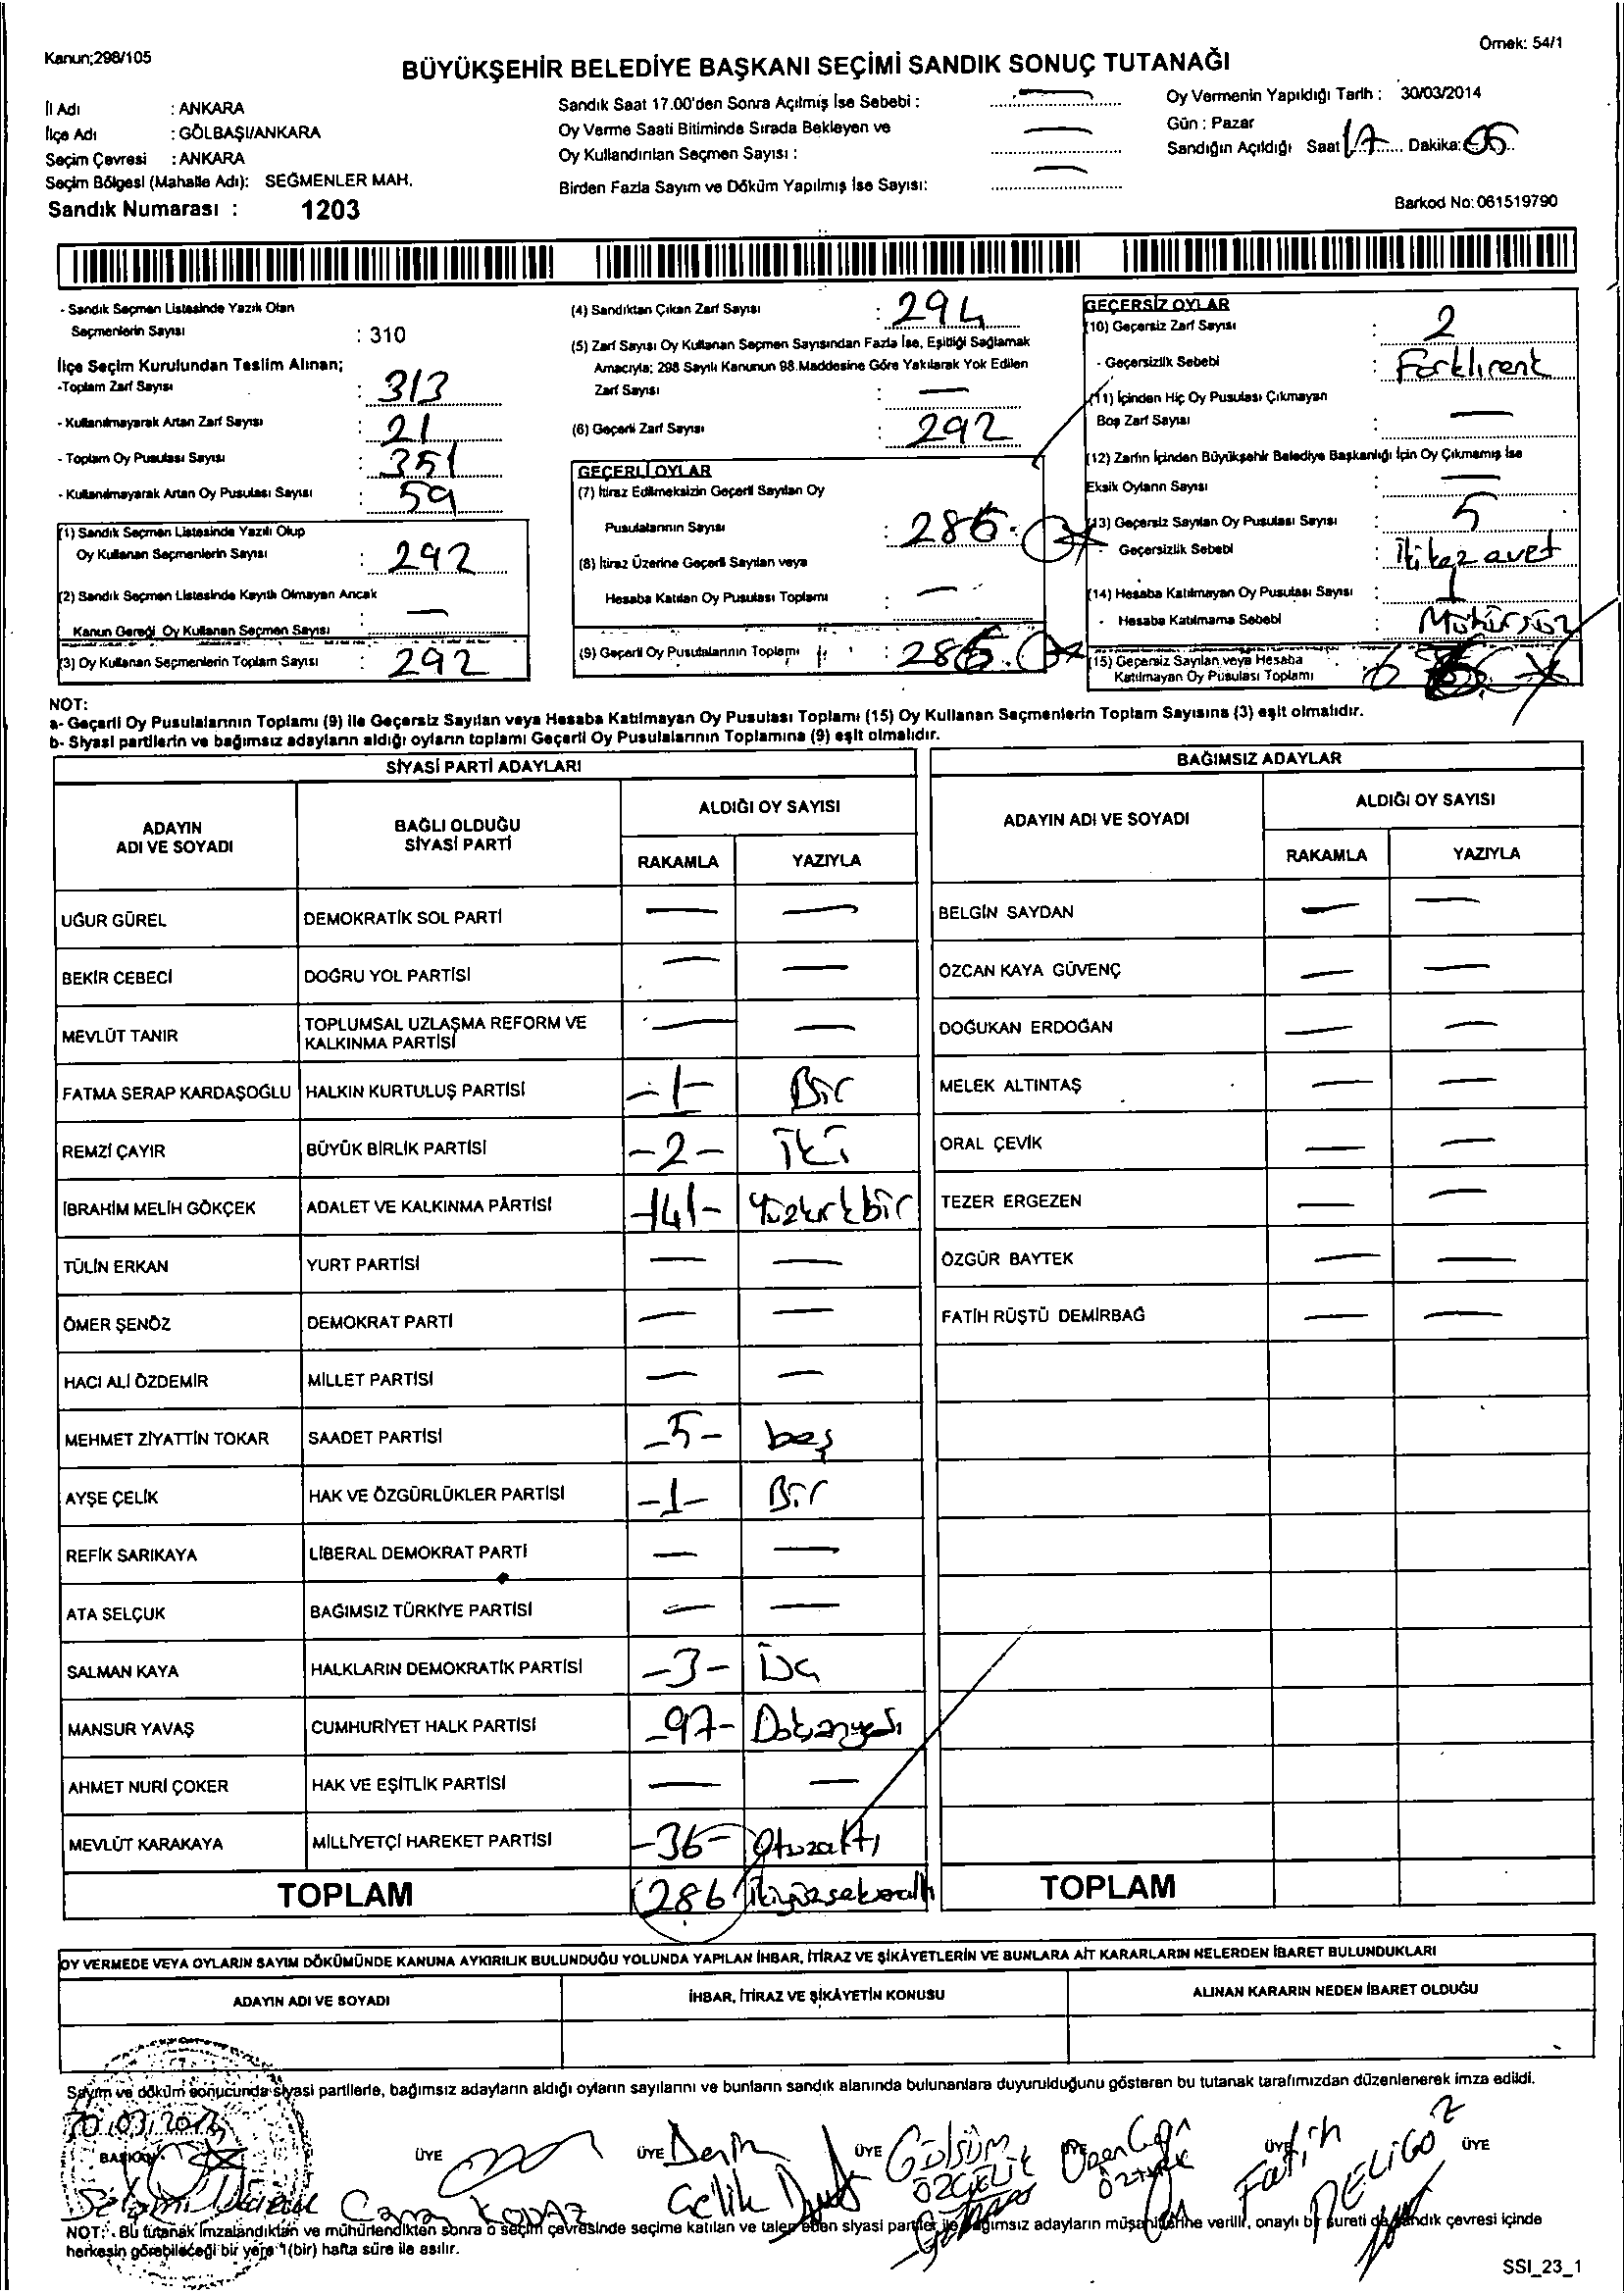 Kanun;298/105
Örnek: 54/1
BÜYÜKŞEHİR BELEDİYE BAŞKANI SEÇİMİ SANDIK SONUÇ TUTANAĞI
İl Adı : ANKARA
İlçe Adı : GÖLBAŞI/ANKARA
Seçim Çevresi : ANKARA
Seçim Bölgesi (Mahalle Adı): SEĞMENLER MAH.
Sandık Numarası : 1203
Sandık Saat 17.00'den Sonra Açılmış İse Sebebi : —
Oy Verme Saati Bitiminde Sırada Bekleyen ve
Oy Kullandırılan Seçmen Sayısı : —
Birden Fazla Sayım ve Döküm Yapılmış İse Sayısı: —
Oy Vermenin Yapıldığı Tarih : 30/03/2014
Gün : Pazar
Sandığın Açıldığı Saat 17 Dakika: 05
Barkod No: 061519790
- Sandık Seçmen Listesinde Yazılı Olan
Seçmenlerin Sayısı : 310
İlçe Seçim Kurulundan Teslim Alınan;
-Toplam Zarf Sayısı : 313
- Kullanılmayarak Artan Zarf Sayısı : 21
- Toplam Oy Pusulası Sayısı : 351
- Kullanılmayarak Artan Oy Pusulası Sayısı : 59
(1) Sandık Seçmen Listesinde Yazılı Olup
Oy Kullanan Seçmenlerin Sayısı : 292
(2) Sandık Seçmen Listesinde Kayıtlı Olmayan Ancak
Kanun Gereği Oy Kullanan Seçmen Sayısı : —
(3) Oy Kullanan Seçmenlerin Toplam Sayısı : 292
(4) Sandıktan Çıkan Zarf Sayısı : 294
(5) Zarf Sayısı Oy Kullanan Seçmen Sayısından Fazla İse, Eşitliği Sağlamak
Amacıyla; 298 Sayılı Kanunun 98.Maddesine Göre Yakılarak Yok Edilen
Zarf Sayısı : —
(6) Geçerli Zarf Sayısı : 292
GEÇERLİ OYLAR
(7) İtiraz Edilmeksizin Geçerli Sayılan Oy
Pusulalarının Sayısı : 286
(8) İtiraz Üzerine Geçerli Sayılan veya
Hesaba Katılan Oy Pusulası Toplamı : —
(9) Geçerli Oy Pusulalarının Toplamı : 286
GEÇERSİZ OYLAR
(10) Geçersiz Zarf Sayısı : 2
- Geçersizlik Sebebi : Farklırenk
(11) İçinden Hiç Oy Pusulası Çıkmayan
Boş Zarf Sayısı : —
(12) Zarfın İçinden Büyükşehir Belediye Başkanlığı İçin Oy Çıkmamış İse
Eksik Oyların Sayısı : —
(13) Geçersiz Sayılan Oy Pusulası Sayısı : 5
- Geçersizlik Sebebi : İki kez evet
(14) Hesaba Katılmayan Oy Pusulası Sayısı : 1
- Hesaba Katılmama Sebebi : Mühürsüz
(15) Geçersiz Sayılan veya Hesaba
Katılmayan Oy Pusulası Toplamı : 6
NOT:
a- Geçerli Oy Pusulalarının Toplamı (9) ile Geçersiz Sayılan veya Hesaba Katılmayan Oy Pusulası Toplamı (15) Oy Kullanan Seçmenlerin Toplam Sayısına (3) eşit olmalıdır.
b- Siyasi partilerin ve bağımsız adayların aldığı oyların toplamı Geçerli Oy Pusulalarının Toplamına (9) eşit olmalıdır.
SİYASİ PARTİ ADAYLARI
ADAYIN ADI VE SOYADI BAĞLI OLDUĞU SİYASİ PARTİ ALDIĞI OY SAYISI
RAKAMLA YAZIYLA
UĞUR GÜREL DEMOKRATİK SOL PARTİ — —
BEKİR CEBECİ DOĞRU YOL PARTİSİ — —
MEVLÜT TANIR TOPLUMSAL UZLAŞMA REFORM VE KALKINMA PARTİSİ — —
FATMA SERAP KARDAŞOĞLU HALKIN KURTULUŞ PARTİSİ -1- Bir
REMZİ ÇAYIR BÜYÜK BİRLİK PARTİSİ -2- İki
İBRAHİM MELİH GÖKÇEK ADALET VE KALKINMA PARTİSİ -141- Yüzkırkbir
TÜLİN ERKAN YURT PARTİSİ — —
ÖMER ŞENÖZ DEMOKRAT PARTİ — —
HACI ALİ ÖZDEMİR MİLLET PARTİSİ — —
MEHMET ZİYATTİN TOKAR SAADET PARTİSİ -5- beş
AYŞE ÇELİK HAK VE ÖZGÜRLÜKLER PARTİSİ -1- Bir
REFİK SARIKAYA LİBERAL DEMOKRAT PARTİ — —
ATA SELÇUK BAĞIMSIZ TÜRKİYE PARTİSİ — —
SALMAN KAYA HALKLARIN DEMOKRATİK PARTİSİ -3- Üç
MANSUR YAVAŞ CUMHURİYET HALK PARTİSİ -97- Doksanyedi
AHMET NURİ ÇOKER HAK VE EŞİTLİK PARTİSİ — —
MEVLÜT KARAKAYA MİLLİYETÇİ HAREKET PARTİSİ -36- Otuzaltı
TOPLAM 286 İkiyüzseksenaltı
BAĞIMSIZ ADAYLAR
ADAYIN ADI VE SOYADI ALDIĞI OY SAYISI
RAKAMLA YAZIYLA
BELGİN SAYDAN — —
ÖZCAN KAYA GÜVENÇ — —
DOĞUKAN ERDOĞAN — —
MELEK ALTINTAŞ — —
ORAL ÇEVİK — —
TEZER ERGEZEN — —
ÖZGÜR BAYTEK — —
FATİH RÜŞTÜ DEMİRBAĞ — —
TOPLAM
OY VERMEDE VEYA OYLARIN SAYIM DÖKÜMÜNDE KANUNA AYKIRILIK BULUNDUĞU YOLUNDA YAPILAN İHBAR, İTİRAZ VE ŞİKÂYETLERİN VE BUNLARA AİT KARARLARIN NELERDEN İBARET BULUNDUKLARI
ADAYIN ADI VE SOYADI İHBAR, İTİRAZ VE ŞİKÂYETİN KONUSU ALINAN KARARIN NEDEN İBARET OLDUĞU
Sayım ve döküm sonucunda siyasi partilerle, bağımsız adayların aldığı oyların sayılarını ve bunların sandık alanında bulunanlara duyurulduğunu gösteren bu tutanak tarafımızdan düzenlenerek imza edildi.
BAŞKAN ÜYE ÜYE ÜYE ÜYE ÜYE
Derin Çelik
Gülsüm ÖZÇELİK
ÖZTÜRK
Fatih DELİGÖZ
NOT: Bu tutanak imzalandıktan ve mühürlendikten sonra o seçim çevresinde seçime katılan ve talep eden siyasi partiler ile bağımsız adayların müşahitlerine verilir, onaylı bir sureti de sandık çevresi içinde
herkesin görebileceği bir yere 1(bir) hafta süre ile asılır.
SSI_23_1